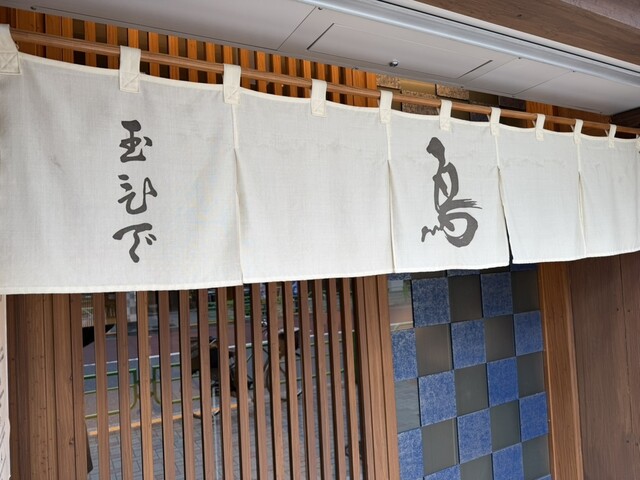 玉ひで
鳥